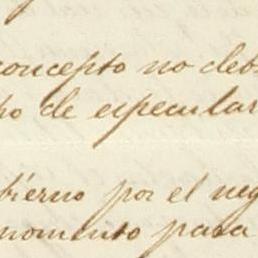 concepto no deb
ho de especular
bierno por el neg
momento para